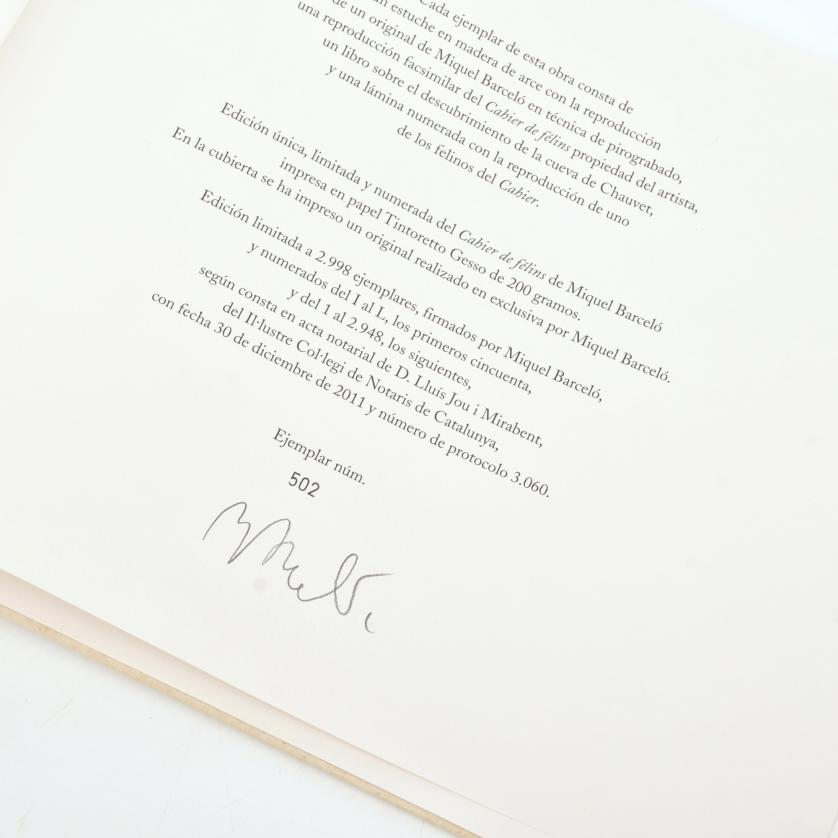 Cada ejemplar de esta obra consta de
estuche en madera de arce con la reproducción
de un original de Miquel Barceló en técnica de pirograbado,
una reproducción facsimilar del Cahier de félins propiedad del artista,
un libro sobre el descubrimiento de la cueva de Chauvet,
y una lámina numerada con la reproducción de uno
de los felinos del Cahier.
Edición única, limitada y numerada del Cahier de félins de Miquel Barceló
impresa en papel Tintoretto Gesso de 200 gramos.
En la cubierta se ha impreso un original realizado en exclusiva por Miquel Barceló.
Edición limitada a 2.998 ejemplares, firmados por Miquel Barceló,
y numerados del I al L, los primeros cincuenta,
y del 1 al 2.948, los siguientes,
según consta en acta notarial de D. Lluís Jou i Mirabent,
del Il·lustre Col·legi de Notaris de Catalunya,
con fecha 30 de diciembre de 2011 y número de protocolo 3.060.
Ejemplar núm.
502